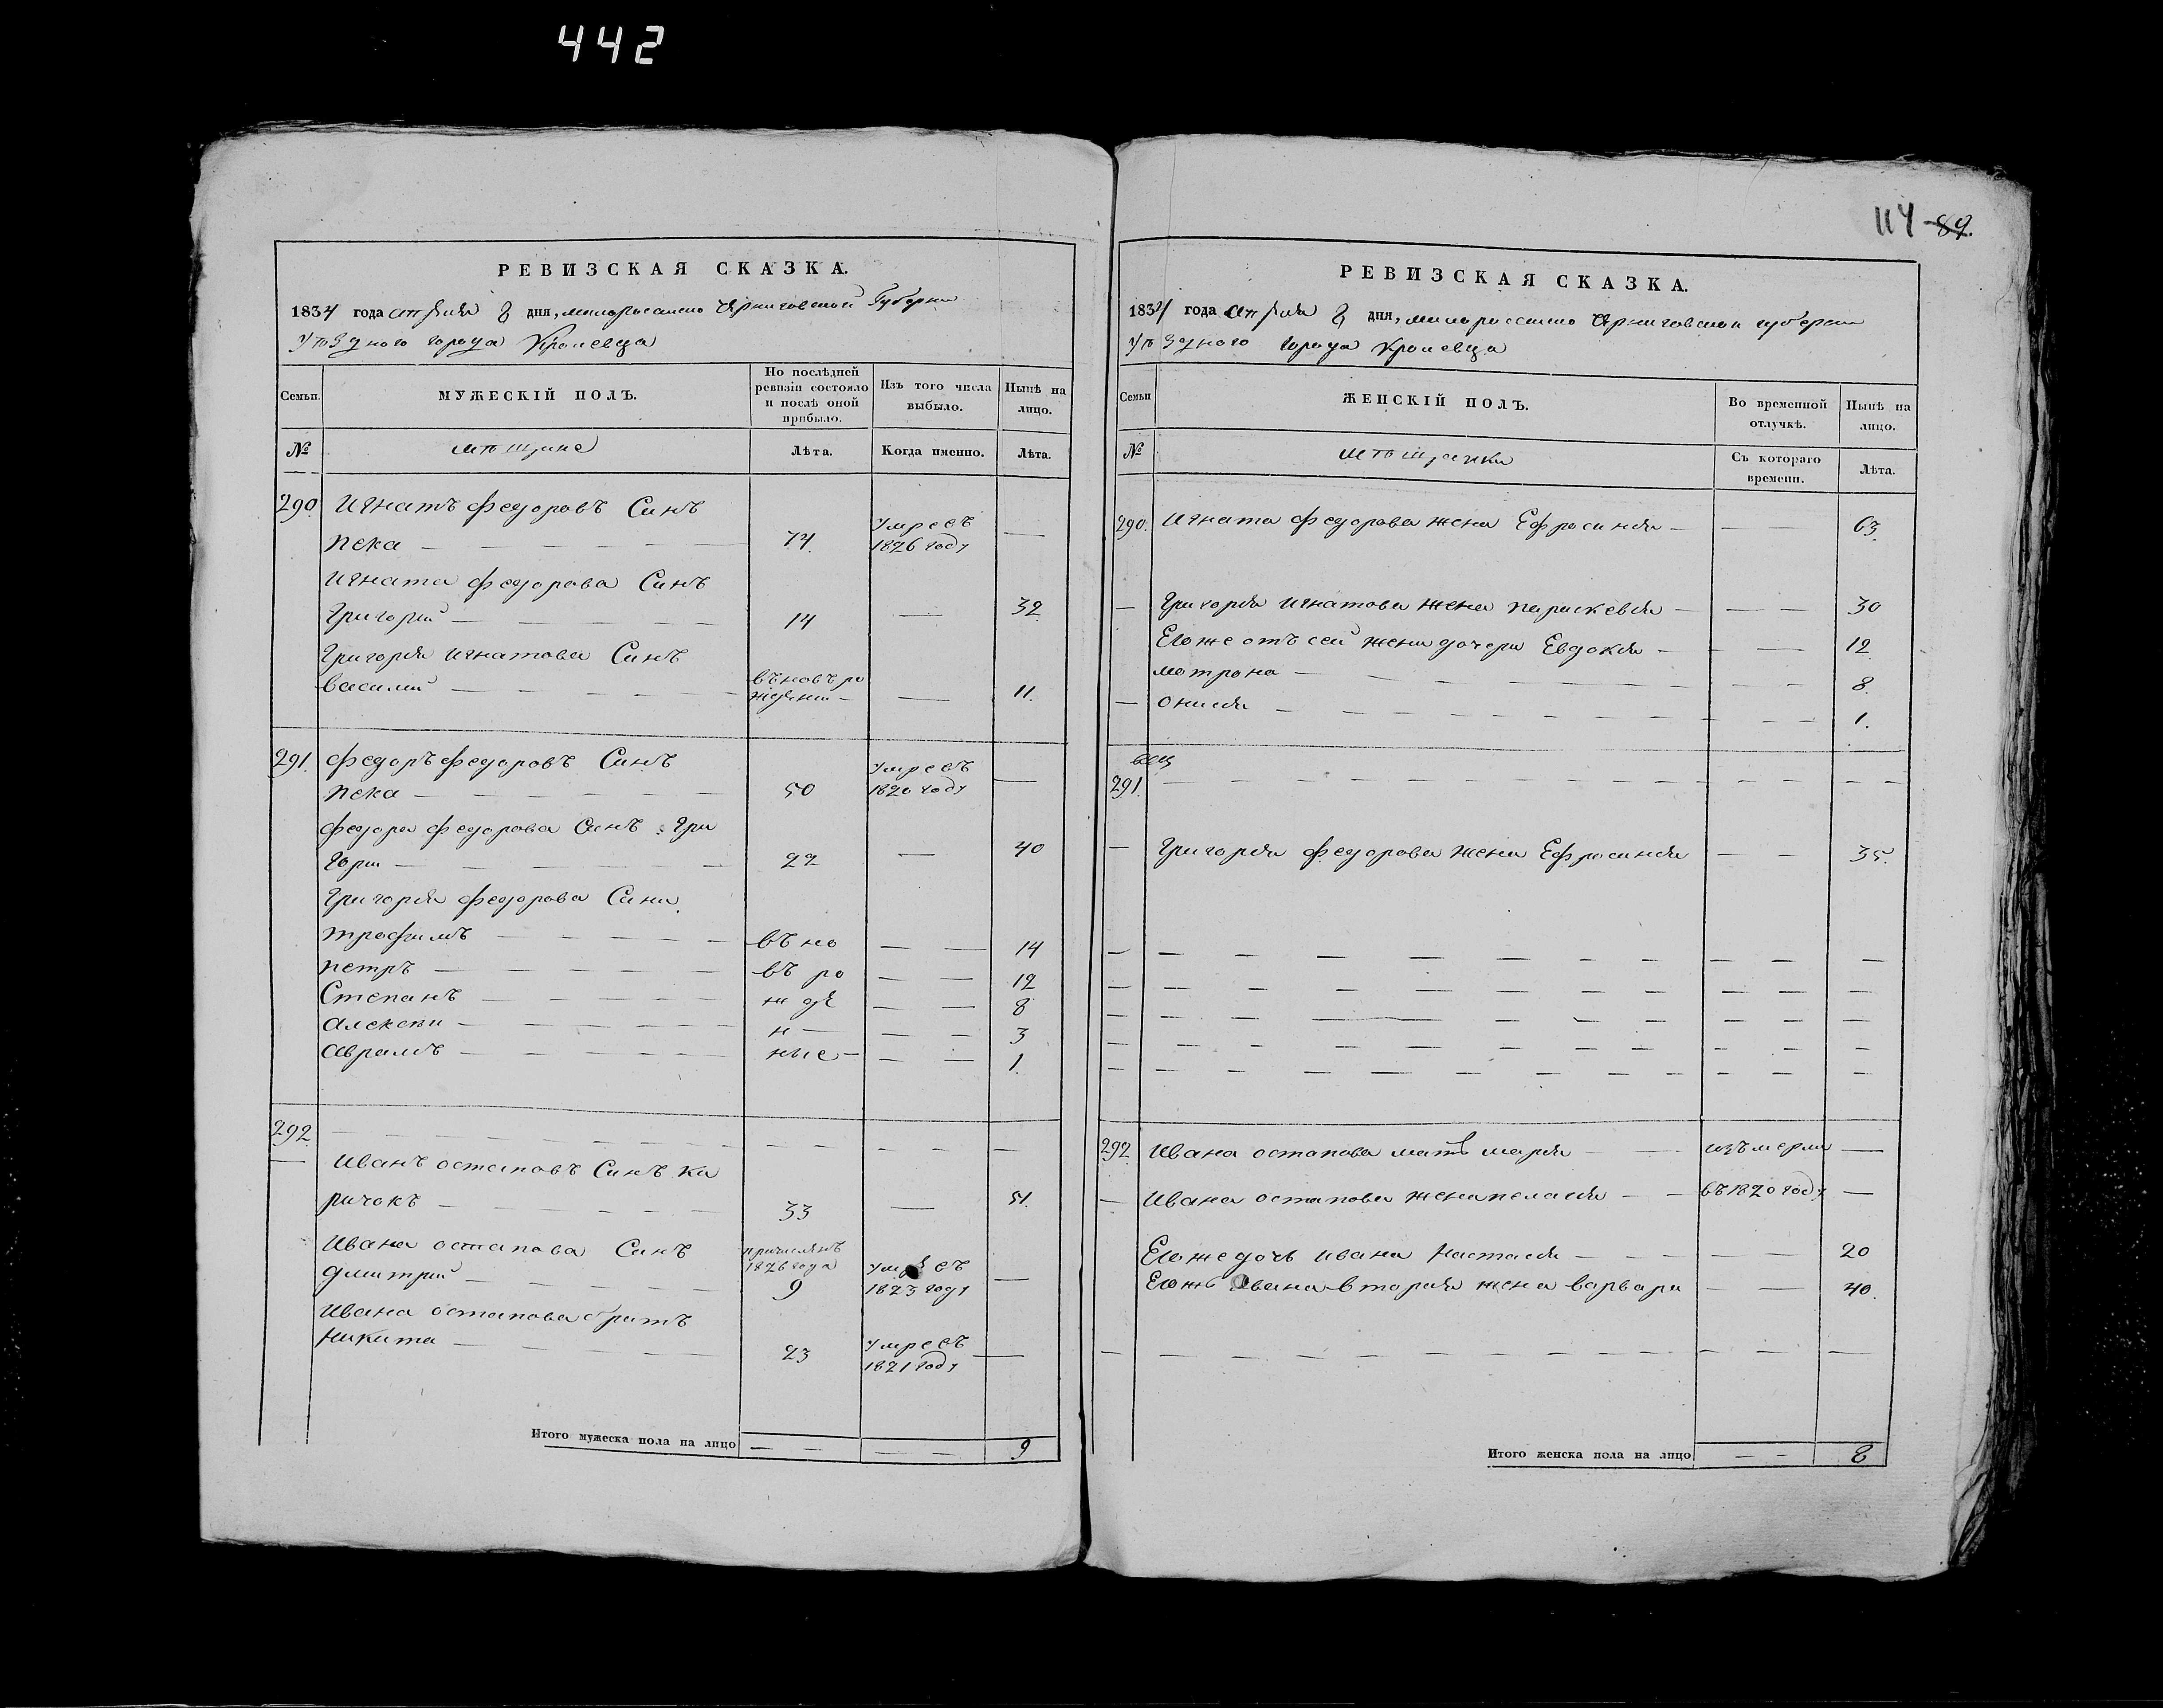 442
114 89.
РЕВИЗСКАЯ СКАЗКА.
1834 года апреля 8 дня, малоросийско Черниговской Губернии
уѣздного города Кролевца
Семьи.
МУЖЕСКІЙ ПОЛЪ.
По послѣдней ревизіи состояло и послѣ оной прибыло.
Изъ того числа выбыло.
Нынѣ на лицо.
№
мѣщане
Лѣта.
Когда именно.
Лѣта.
290. Игнатъ федоровъ Синъ
пека — 74. умреъ 1826 году —
Игната федорова Синъ
Григорий — 14 — 32.
Григорія Игнатова Синъ
василий — въновъ ро ждени — — 11.
291. федоръ федоровъ Синъ
пека — 50 умреъ 1820 году —
федора федорова Синъ Гри
гори — 22 — 40
Григорія федорова Сини
трофимъ — въ но — — 14
петръ — въ ро — — 12
Степанъ — жде — — 8
алексѣи — н — — — 3
аврамъ — ные — — — 1.
292. — — —
Иванъ остаповъ Синъ Ки
ричокъ — 33 — 51.
Ивана остапова Синъ причислѣнъ 1826 года
дмитрий — 9 умреъ 1823 году —
Ивана остапова братъ
Никита — 23 умреъ 1821 году —
Итого мужеска пола на лицо — — — — 9
РЕВИЗСКАЯ СКАЗКА.
1834 года апреля 8 дня, малоросийско Черниговской губернии
уѣздного города Кролевца
Семьи
ЖЕНСКІЙ ПОЛЪ.
Во временной отлучкѣ.
Нынѣ на лицо.
№
мѣщанки
Съ котораго времени.
Лѣта.
290. Игната федорова жена Ефросинія — — — 63.
— Григорія Игнатова жена параскевія — — — 30
Егоже отъ сей жени дочери Евдокія — — — 12.
матрона — — — 8.
— — — 1.
291. — — —
— Григорія федорова жена Ефросинія — — 35.
292. Ивана остапова мать марія — — изъмерли —
— Ивана остапова жена пелагія — — въ 1820 году —
Егоже дочь ивана Настасія — — — 20
Егожъ Ивана вторая жена варвара — — 40.
— — —
Итого женска пола на лицо — — 8